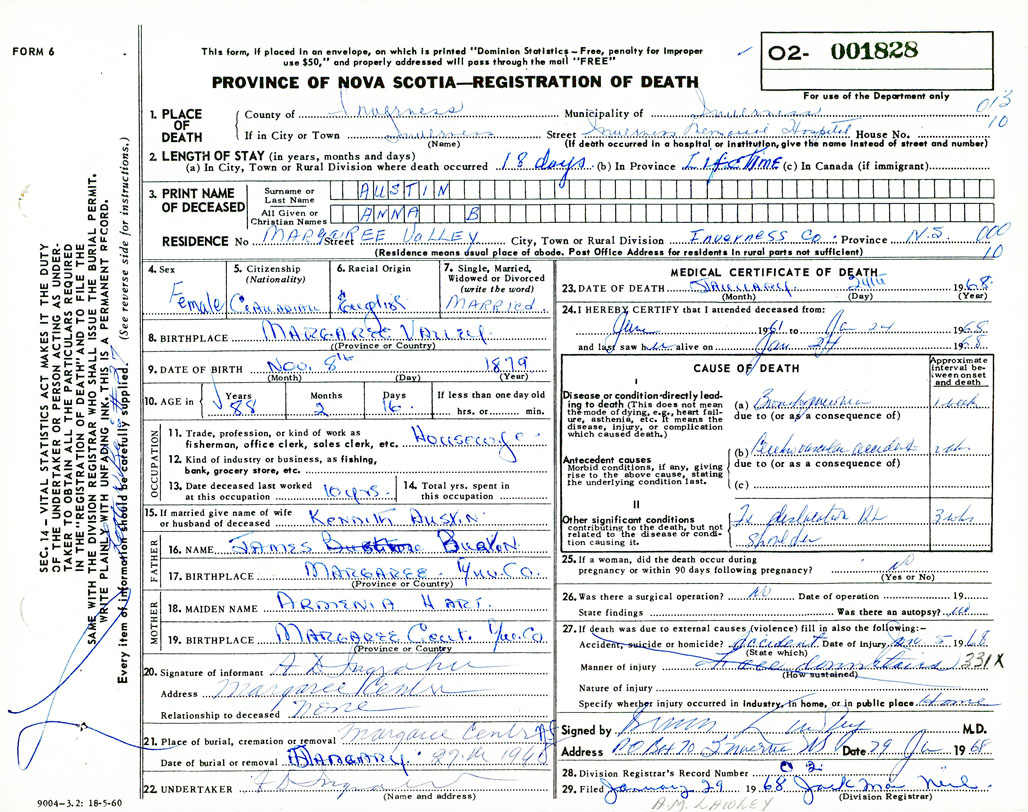 FORM 6
This form, if placed in an envelope, on which is printed "Dominion Statistics – Free, penalty for improper
use $50," and properly addressed will pass through the mail "FREE"
O2- 001828
PROVINCE OF NOVA SCOTIA—REGISTRATION OF DEATH
For use of the Department only
013
10
1. PLACE OF DEATH
County of Inverness Municipality of Inverness
If in City or Town Inverness Street Inverness Memorial Hospital House No.
(Name) (If death occurred in a hospital or institution, give the name instead of street and number)
2. LENGTH OF STAY (in years, months and days)
(a) In City, Town or Rural Division where death occurred 18 days (b) In Province LifeTime (c) In Canada (if immigrant)
3. PRINT NAME OF DECEASED
Surname or Last Name AUSTIN
All Given or Christian Names ANNA B
RESIDENCE No MARGAREE VALLEY Street City, Town or Rural Division INVERNESS Co. Province N.S. 000
10
(Residence means usual place of abode. Post Office Address for residents in rural parts not sufficient)
4. Sex Female
5. Citizenship (Nationality) Canadian
6. Racial Origin English
7. Single, Married, Widowed or Divorced (write the word) MARRIED.
8. BIRTHPLACE MARGAREE VALLEY.
(Province or Country)
9. DATE OF BIRTH Nov. 8th 1879
(Month) (Day) (Year)
10. AGE in Years 88 Months 2 Days 16 If less than one day old hrs. or min.
OCCUPATION
11. Trade, profession, or kind of work as fisherman, office clerk, sales clerk, etc. Housewife.
12. Kind of industry or business, as fishing, bank, grocery store, etc.
13. Date deceased last worked at this occupation 10 yrs.
14. Total yrs. spent in this occupation
15. If married give name of wife or husband of deceased KENNITH AUSTIN
FATHER
16. NAME JAMES BURTON
17. BIRTHPLACE MARGAREE. Inv. Co.
(Province or Country)
MOTHER
18. MAIDEN NAME ARMENIA HART.
19. BIRTHPLACE MARGAREE Cent. Inv. Co
(Province or Country)
20. Signature of informant A D Ingraham
Address Margaree Centre
Relationship to deceased None
21. Place of burial, cremation or removal Margaree Centre
Date of burial or removal JANUARY 27th 1968
22. UNDERTAKER A D Ingraham
(Name and address)
MEDICAL CERTIFICATE OF DEATH
23. DATE OF DEATH JANUARY 24th 1968
(Month) (Day) (Year)
24. I HEREBY CERTIFY that I attended deceased from:
Jan 1961 to Jan 24 1968
and last saw her alive on Jan 24 1968
CAUSE OF DEATH
Approximate interval between onset and death
I
Disease or condition directly leading to death (This does not mean the mode of dying, e.g., heart failure, asthenia, etc. It means the disease, injury, or complication which caused death.)
(a) Bronchopneumonia 1 week
due to (or as a consequence of)
Antecedent causes
Morbid conditions, if any, giving rise to the above cause, stating the underlying condition last.
(b) accident 2 wks
due to (or as a consequence of)
(c)
II
Other significant conditions contributing to the death, but not related to the disease or condition causing it.
dislocation Rt shoulder 3 wks
25. If a woman, did the death occur during pregnancy or within 90 days following pregnancy? No
(Yes or No)
26. Was there a surgical operation? NO Date of operation 19
State findings Was there an autopsy? no
27. If death was due to external causes (violence) fill in also the following:–
Accident, suicide or homicide? accident Date of injury Jan. 5 1968
(State which)
Manner of injury downstairs 331X
(How sustained)
Nature of injury
Specify whether injury occurred in industry, in home, or in public place Home
Signed by M.D.
Address P.O. Box 70 Inverness NS Date 29 Jan 1968
28. Division Registrar's Record Number 02
29. Filed January 29 1968 Jack Mac Neil
(Division Registrar)
A.M. LAWLEY
SEC. 14 – VITAL STATISTICS ACT MAKES IT THE DUTY
OF THE UNDERTAKER OR PERSON ACTING AS UNDERTAKER TO OBTAIN ALL THE PARTICULARS REQUIRED
IN THE "REGISTRATION OF DEATH" AND TO FILE THE
SAME WITH THE DIVISION REGISTRAR WHO SHALL ISSUE THE BURIAL PERMIT.
WRITE PLAINLY WITH UNFADING INK. THIS IS A PERMANENT RECORD.
Every item of information should be carefully supplied. (See reverse side for instructions.)
9004–3.2: 18-5-60